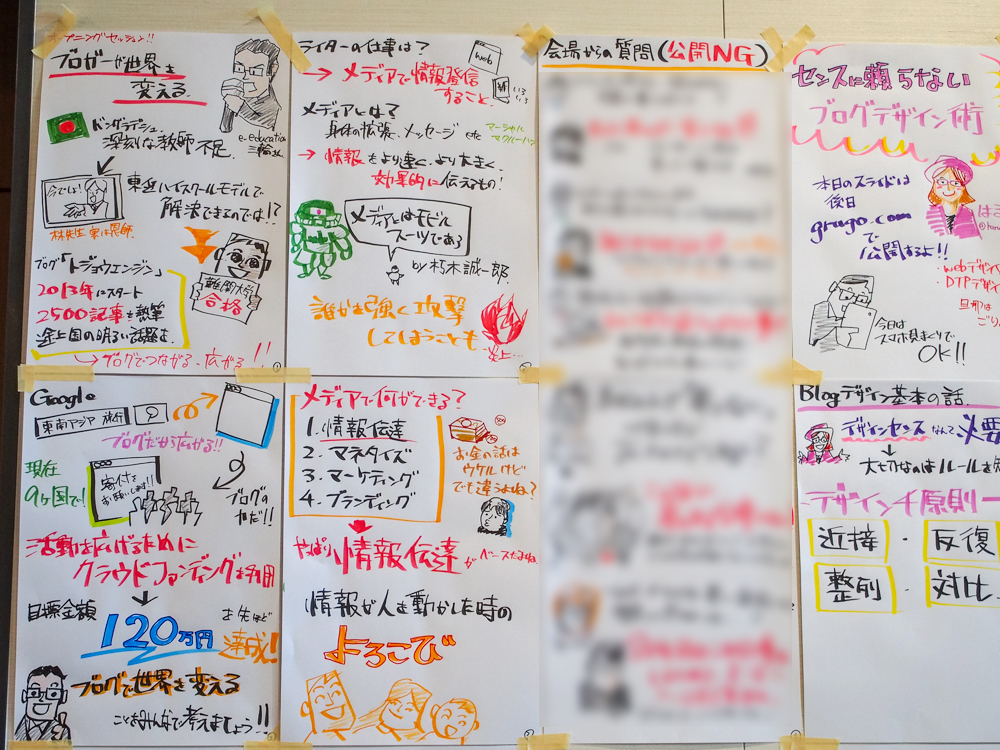 オープニングセッション!!
ブロガーが世界を
変える
e-education
三輪さん
バングラデシュ
深刻な教師不足
今でしょ!
東進ハイスクールモデルで
解決できるのでは!?
林先生 実は恩師
難関大学
合格
ブログ「トジョウエンジン」
2013年にスタート
2500記事を執筆
途上国の明るい話題を
ブログでつながる、広がる!!
①
Google
東南アジア 旅行
ブログだから広がる!!
現在
9ヶ国で!
寄付を
お願いします!!
ブログの
力だ!!
活動を広げるために
クラウドファンディングを利用
目標金額
さきほど
120万円
達成!!
ブログで世界を変える
ことをみんなで考えましょう!!
ライターの仕事は?
web
いろいろ
→ メディアで情報発信
すること。
メディアとは?
身体の拡張、メッセージ
マーシャル
マクルーハン
→ 情報をより速く、より大きく、
効果的に伝えるもの!
メディアはモビル
スーツである
by 朽木誠一郎
誰かを強く攻撃
してしまうことも
炎上…
メディアで何ができる?
1. 情報伝達
2. マネタイズ
3. マーケティング
4. ブランディング
お金の話は
ウケルけど
でも違うよね?
やっぱり情報伝達が
ベースだよね
情報が人を動かした時の
よろこび
会場からの質問(公開NG)
センスに頼らない
ブログデザイン術
本日のスライドは
後日
grugo.com
で
公開するよ!!
webデザイ
DTPデザイ
旦那は
ごり
今日は
スマホ見まくりで
OK!!
Blogデザイン基本の話
デザインセンスなんて
大切なのはルールを
デザイン4原則
近接・反復
整列・対比